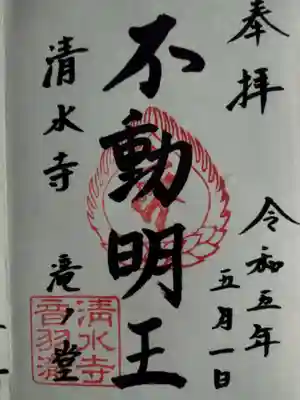 奉拝
令和五年
五月一日
不動明王
清水寺 滝ノ堂
清水寺
音羽瀧